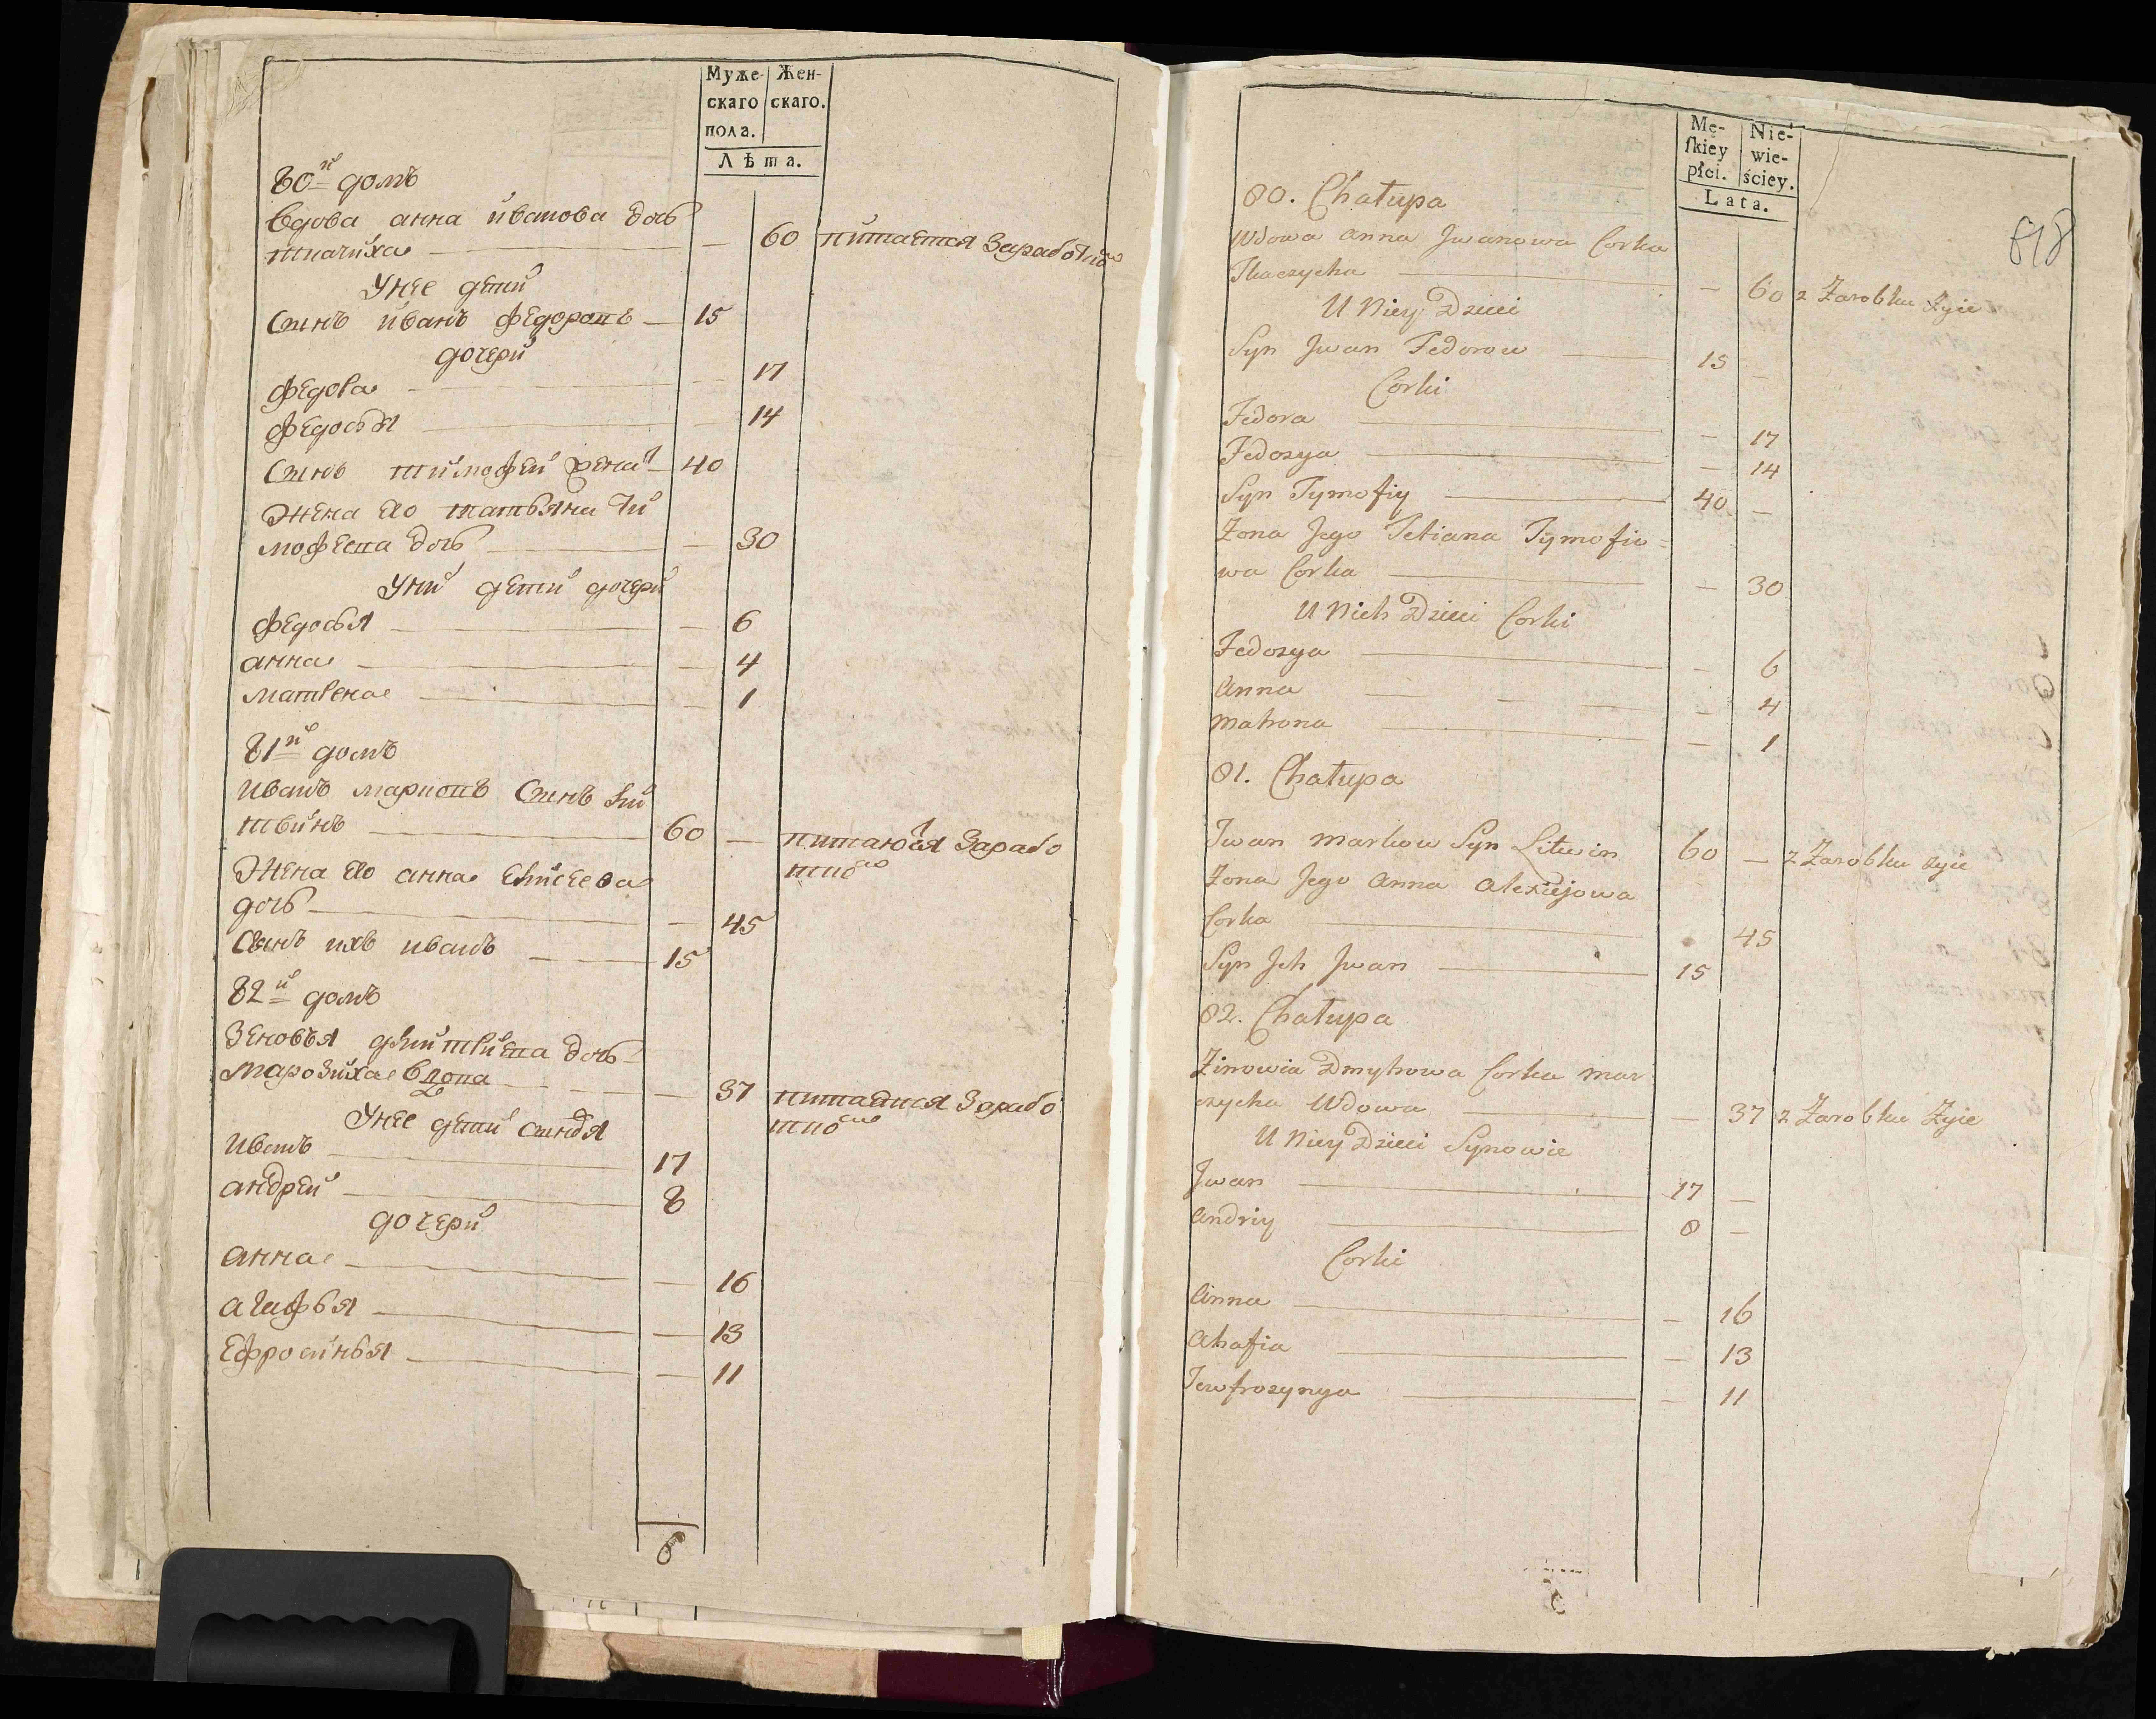 Муже-
скаго
пола.
Жен-
скаго.
Лѣта.
80й домъ
Вдова анна иванова дочь
ткачиха — — 60 питается Заработкою
У нее дети
Сынъ иванъ Федоровъ — 15
дочери
Федора — — 17
Федосья — — 14
Сынъ тимофей — 40
Жена его татьяна Ти
мофеева дочь — — 30
У них дети дочери
Федосья — — 6
анна — — 4
матрена — — 1
81й домъ
иванъ марковъ Сынъ ли
твинъ — 60 — питаются Зарабо
ткою
Жена его анна Елисеева
дочь — — 45
Сынъ ихъ иванъ — 15
82й домъ
Зеновья дмитриева дочь
марозиха вдова — — 37 питается Зарабо
ткою
У нее дети Сыновья
иванъ — 17
андрей — 8
дочери
анна — — 16
агафья — — 13
Ефросинья — — 11
6
Mę-
ſkiey
płci.
Nie-
wie-
ściey.
Lata.
818
80. Chałupa
Wdowa Anna Jwanowa Corka
Tkaczycha — — 60 z Zarobku Żyie
U Niey Dzieci
Syn Jwan Fedorow — 15 —
Corki
Fedora — — 17
Fedosya — — 14
Syn Tymofiy — 40 —
Żona Jego Tetiana Tymofie=
wa Corka — — 30
U Nich Dzieci Corki
Fedosya — — 6
Anna — — 4
Matrona — — 1
81. Chałupa
Jwan Markow Syn Litwin 60 — z Zarobku żyie
Żona Jego Anna Alexiejowa
Corka 45
Syn Jch Jwan — 15
82. Chałupa
Zinowia Dmytrowa Corka Mar
czycha Wdowa — — 37 z Zarobku Żyie
U Niey Dzieci Synowie
Jwan — 17 —
Andriy — 8 —
Corki
Anna — — 16
Ahafia — — 13
Jewfrozynya — — 11